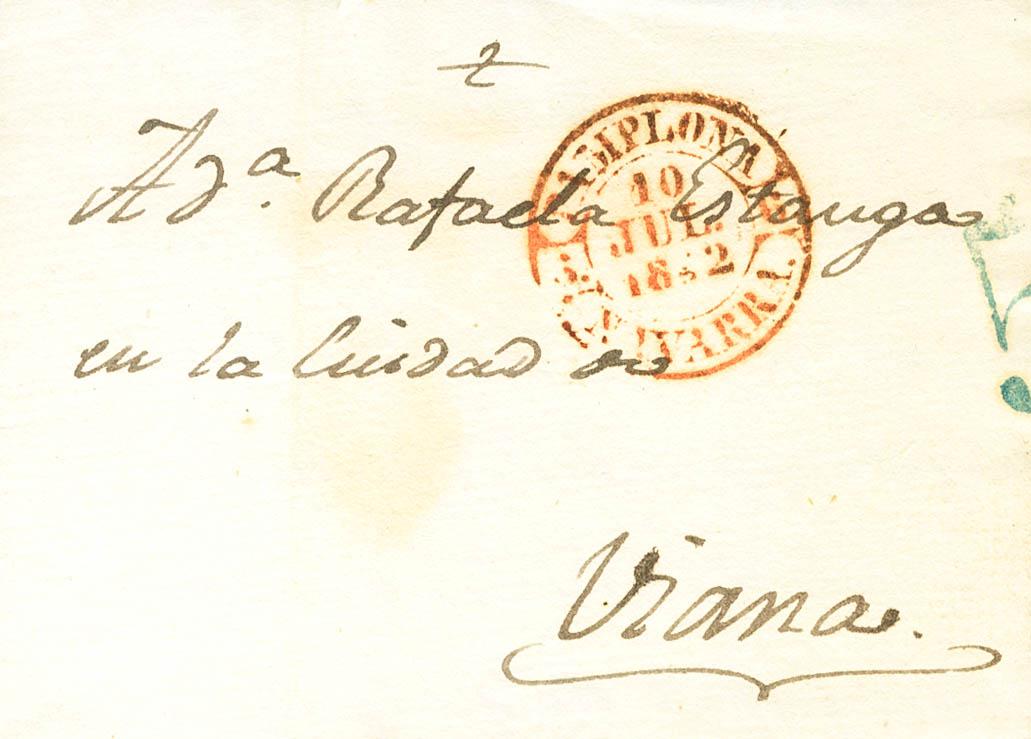 A dª. Rafaela Estanga
en la Ciudad de
Viana.
PAMPLONA
10
JUL.
1842
NAVARRA.
5